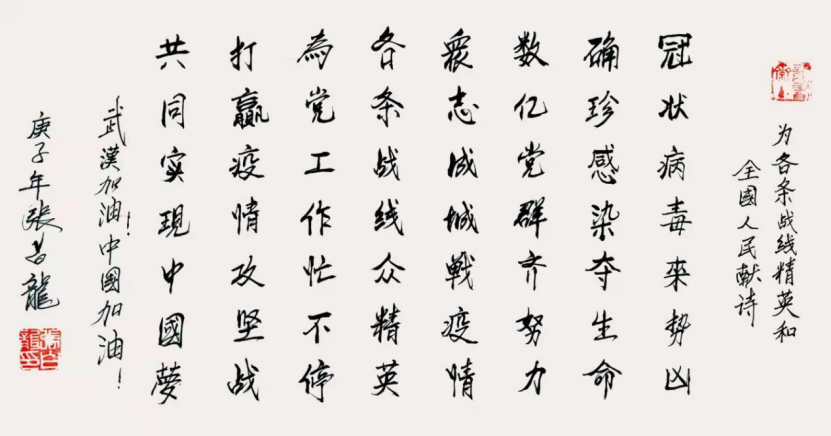 为各条战线精英和
全國人民献诗
冠状病毒來势凶
确珍感染夺生命
数亿党群齐努力
衆志成城戰疫情
各条战线众精英
為党工作忙不停
打贏疫情攻坚战
共同实現中國夢
武漢加油！中國加油！
庚子年張昌龍